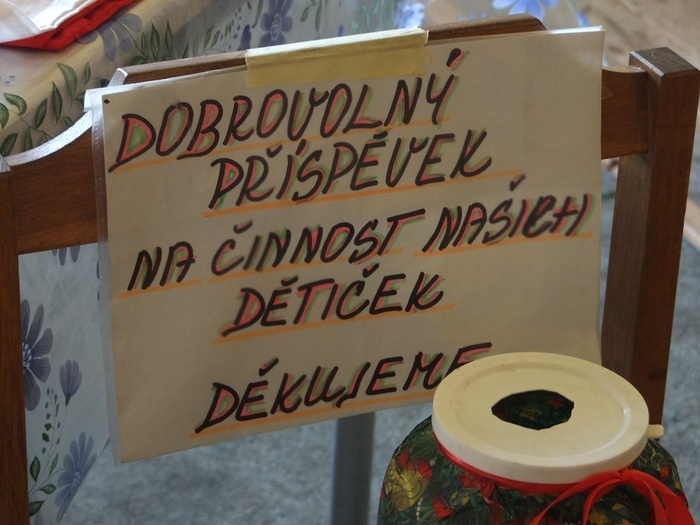 DOBROVOLNÝ
PŘÍSPĚVEK
NA ČINNOST NAŠICH
DĚTIČEK
DĚKUJEME